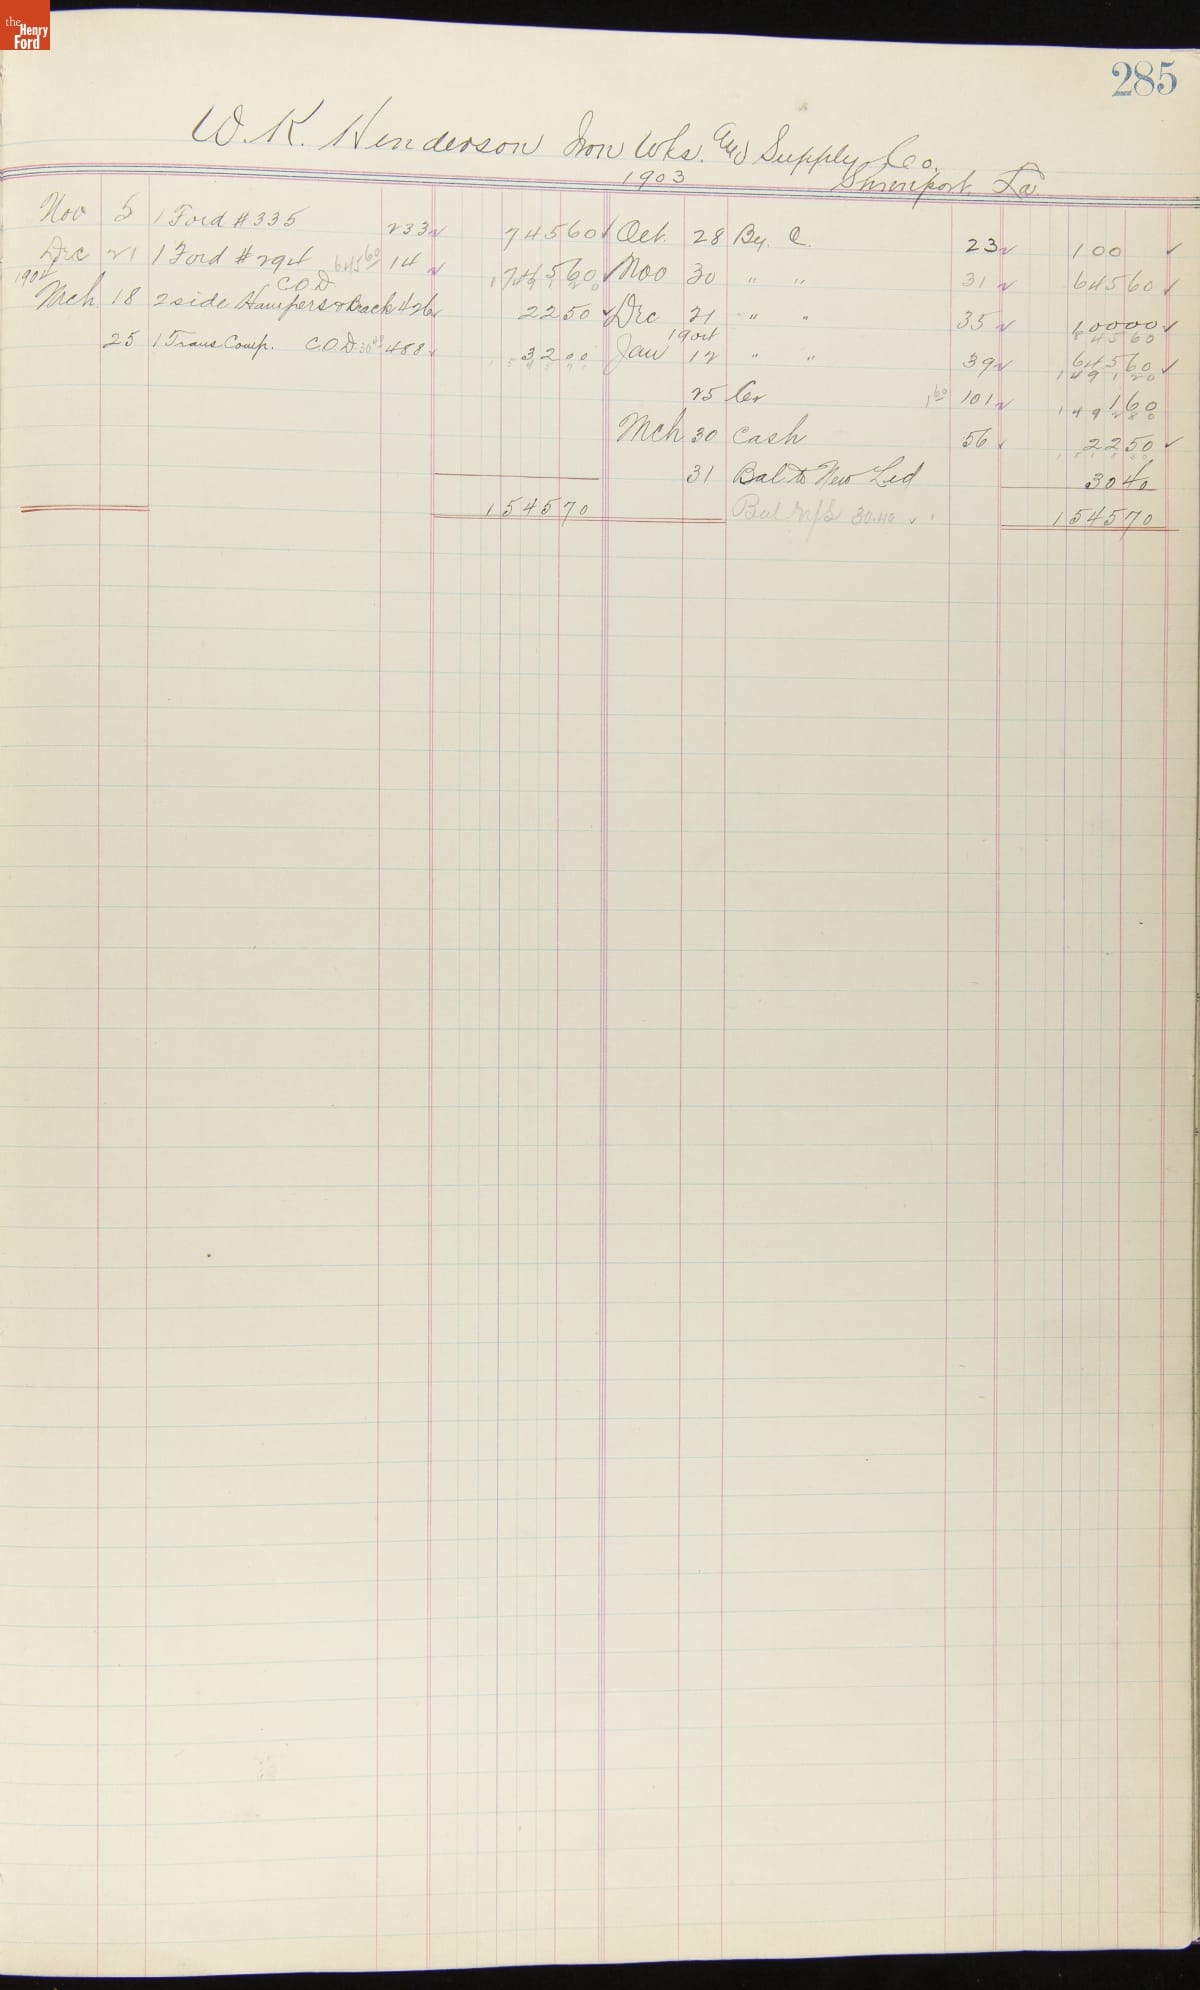 the Henry Ford
285
W. K. Henderson Iron Wks. and Supply Co.
1903 Shreveport, La
Nov 5 1 Ford #335 233 745 60
Dec 21 1 Ford #294 645 60 14 745 60
1904 C.O.D
Mch 18 2 side Hampers & Back 426 22 50
25 1 Trans Comp. C.O.D 30 40 488 32 00
1545 70
Oct. 28 By. C. 23 100
Nov 30 " " 31 645 60
Dec 21 " " 35 100 00
845 60
1904
Jan 12 " " 39 645 60
1491 20
25 Cr 1 60 101 1 60
1492 80
Mch 30 Cash 56 22 50
31 Bal to New Led 30 40
Bal 30.40 1545 70